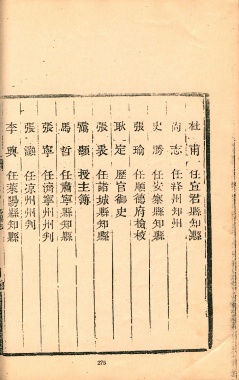 杜甫 任宜君縣知縣
尚志 任絳州知州
史勝 任安塞縣知縣
張瑜 任順德府檢校
耿定 歷官御史
張裴 任諸城縣知縣
顒 授主簿
馬哲 任肅寧縣知縣
張寧 任濟寧州州判
張 任涼州州判
李興 任萊陽縣知縣
275